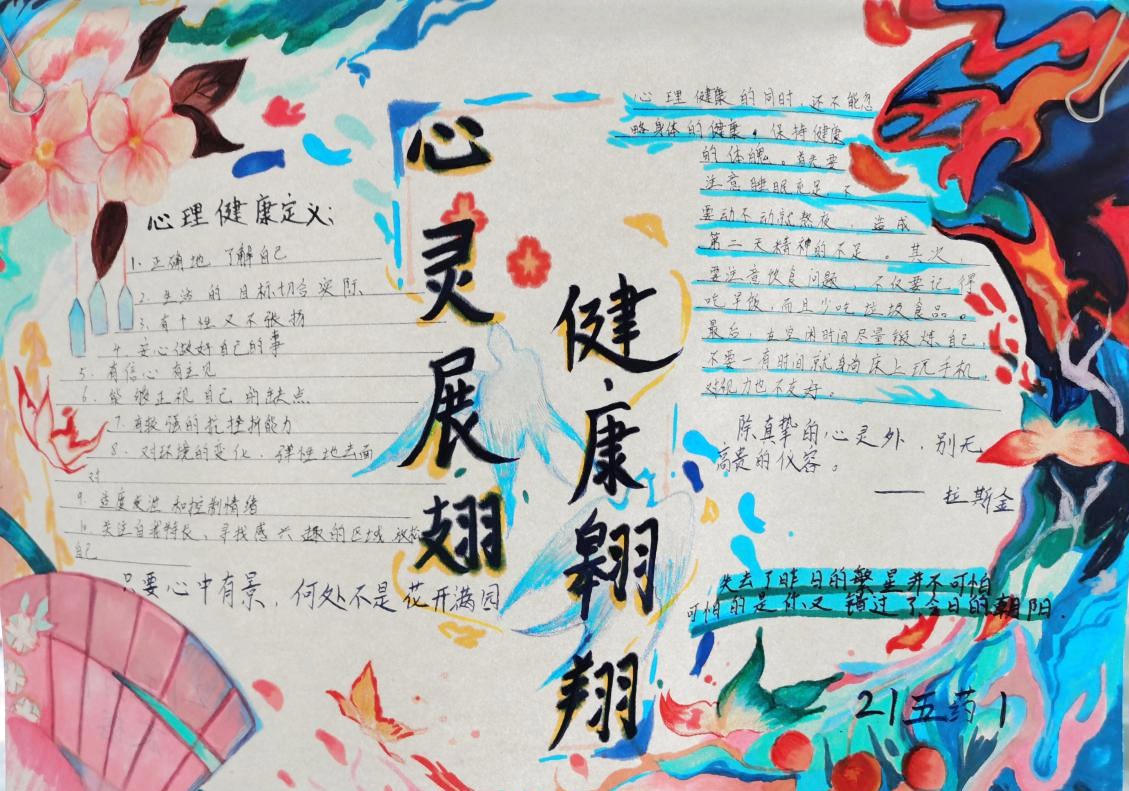 心灵展翅
健康翱翔
心理健康定义:
1. 正确地 了解自己
2. 生活的目标切合实际
3. 有个性又不张扬
4. 安心做好自己的事
5. 有信心 有主见
6. 能够正视自己的缺点
7. 有较强的抗挫折能力
8. 对环境的变化，弹性地去面
对
9. 适度宣泄和控制情绪
10. 关注自我特长，寻找感兴趣的区域
自己
只要心中有景，何处不是花开满园
心理健康的同时，还不能忽
略身体的健康。保持健康
的体魄。首先要
注意睡眠充足，不
要动不动就熬夜，造成
第二天精神的不足。其次，
要注意饮食问题，不仅要记得
吃早饭，而且少吃垃圾食品。
最后，在空闲时间尽量锻炼自己，
不要一有时间就躺床上玩手机，
对视力也不友好。
除真挚的心灵外，别无
高贵的仪容。
—— 拉斯金
失去了昨日的繁星并不可怕
可怕的是你又错过了今日的朝阳.
21五药1